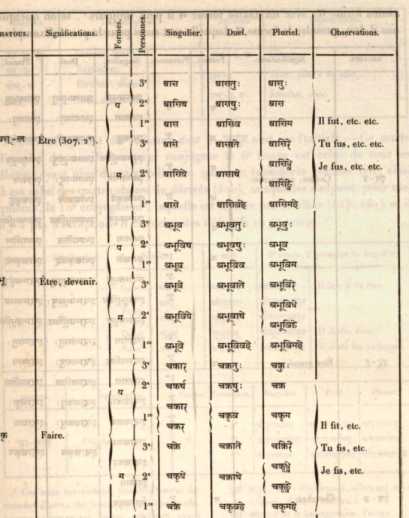 Significations. Formes. Personnes. Singulier. Duel. Pluriel. Observations.
3ᵉ आस आसतुः आसुः
प 2ᵉ आसिथ आसथुः आस
1ʳᵉ आस आसिव आसिम Il fut, etc. etc.
Être (307, 2°). 3ᵉ आसे आसाते आसिरे Tu fus, etc. etc.
म 2ᵉ आसिषे आसाथे आसिध्वे Je fus, etc. etc.
1ʳᵉ आसे आसिवहे आसिमहे
3ᵉ बभूव बभूवतुः बभूवुः
प 2ᵉ बभूविथ बभूवथुः बभूव
1ʳᵉ बभूव बभूविव बभूविम
भू Être, devenir. 3ᵉ बभूवे बभूवाते बभूविरे
म 2ᵉ बभूविषे बभूवाथे बभूविध्वे
बभूविढ्वे
1ʳᵉ बभूवे बभूविवहे बभूविमहे
3ᵉ चकार चक्रतुः चक्रुः
प 2ᵉ चकर्थ चक्रथुः चक्र
1ʳᵉ चकार चकृव चकृम
चकर Il fit, etc.
कृ Faire. 3ᵉ चक्रे चक्राते चक्रिरे Tu fis, etc.
म 2ᵉ चकृषे चक्राथे चकृध्वे Je fis, etc.
चकृढ्वे
1ʳᵉ चक्रे चकृवहे चकृमहे